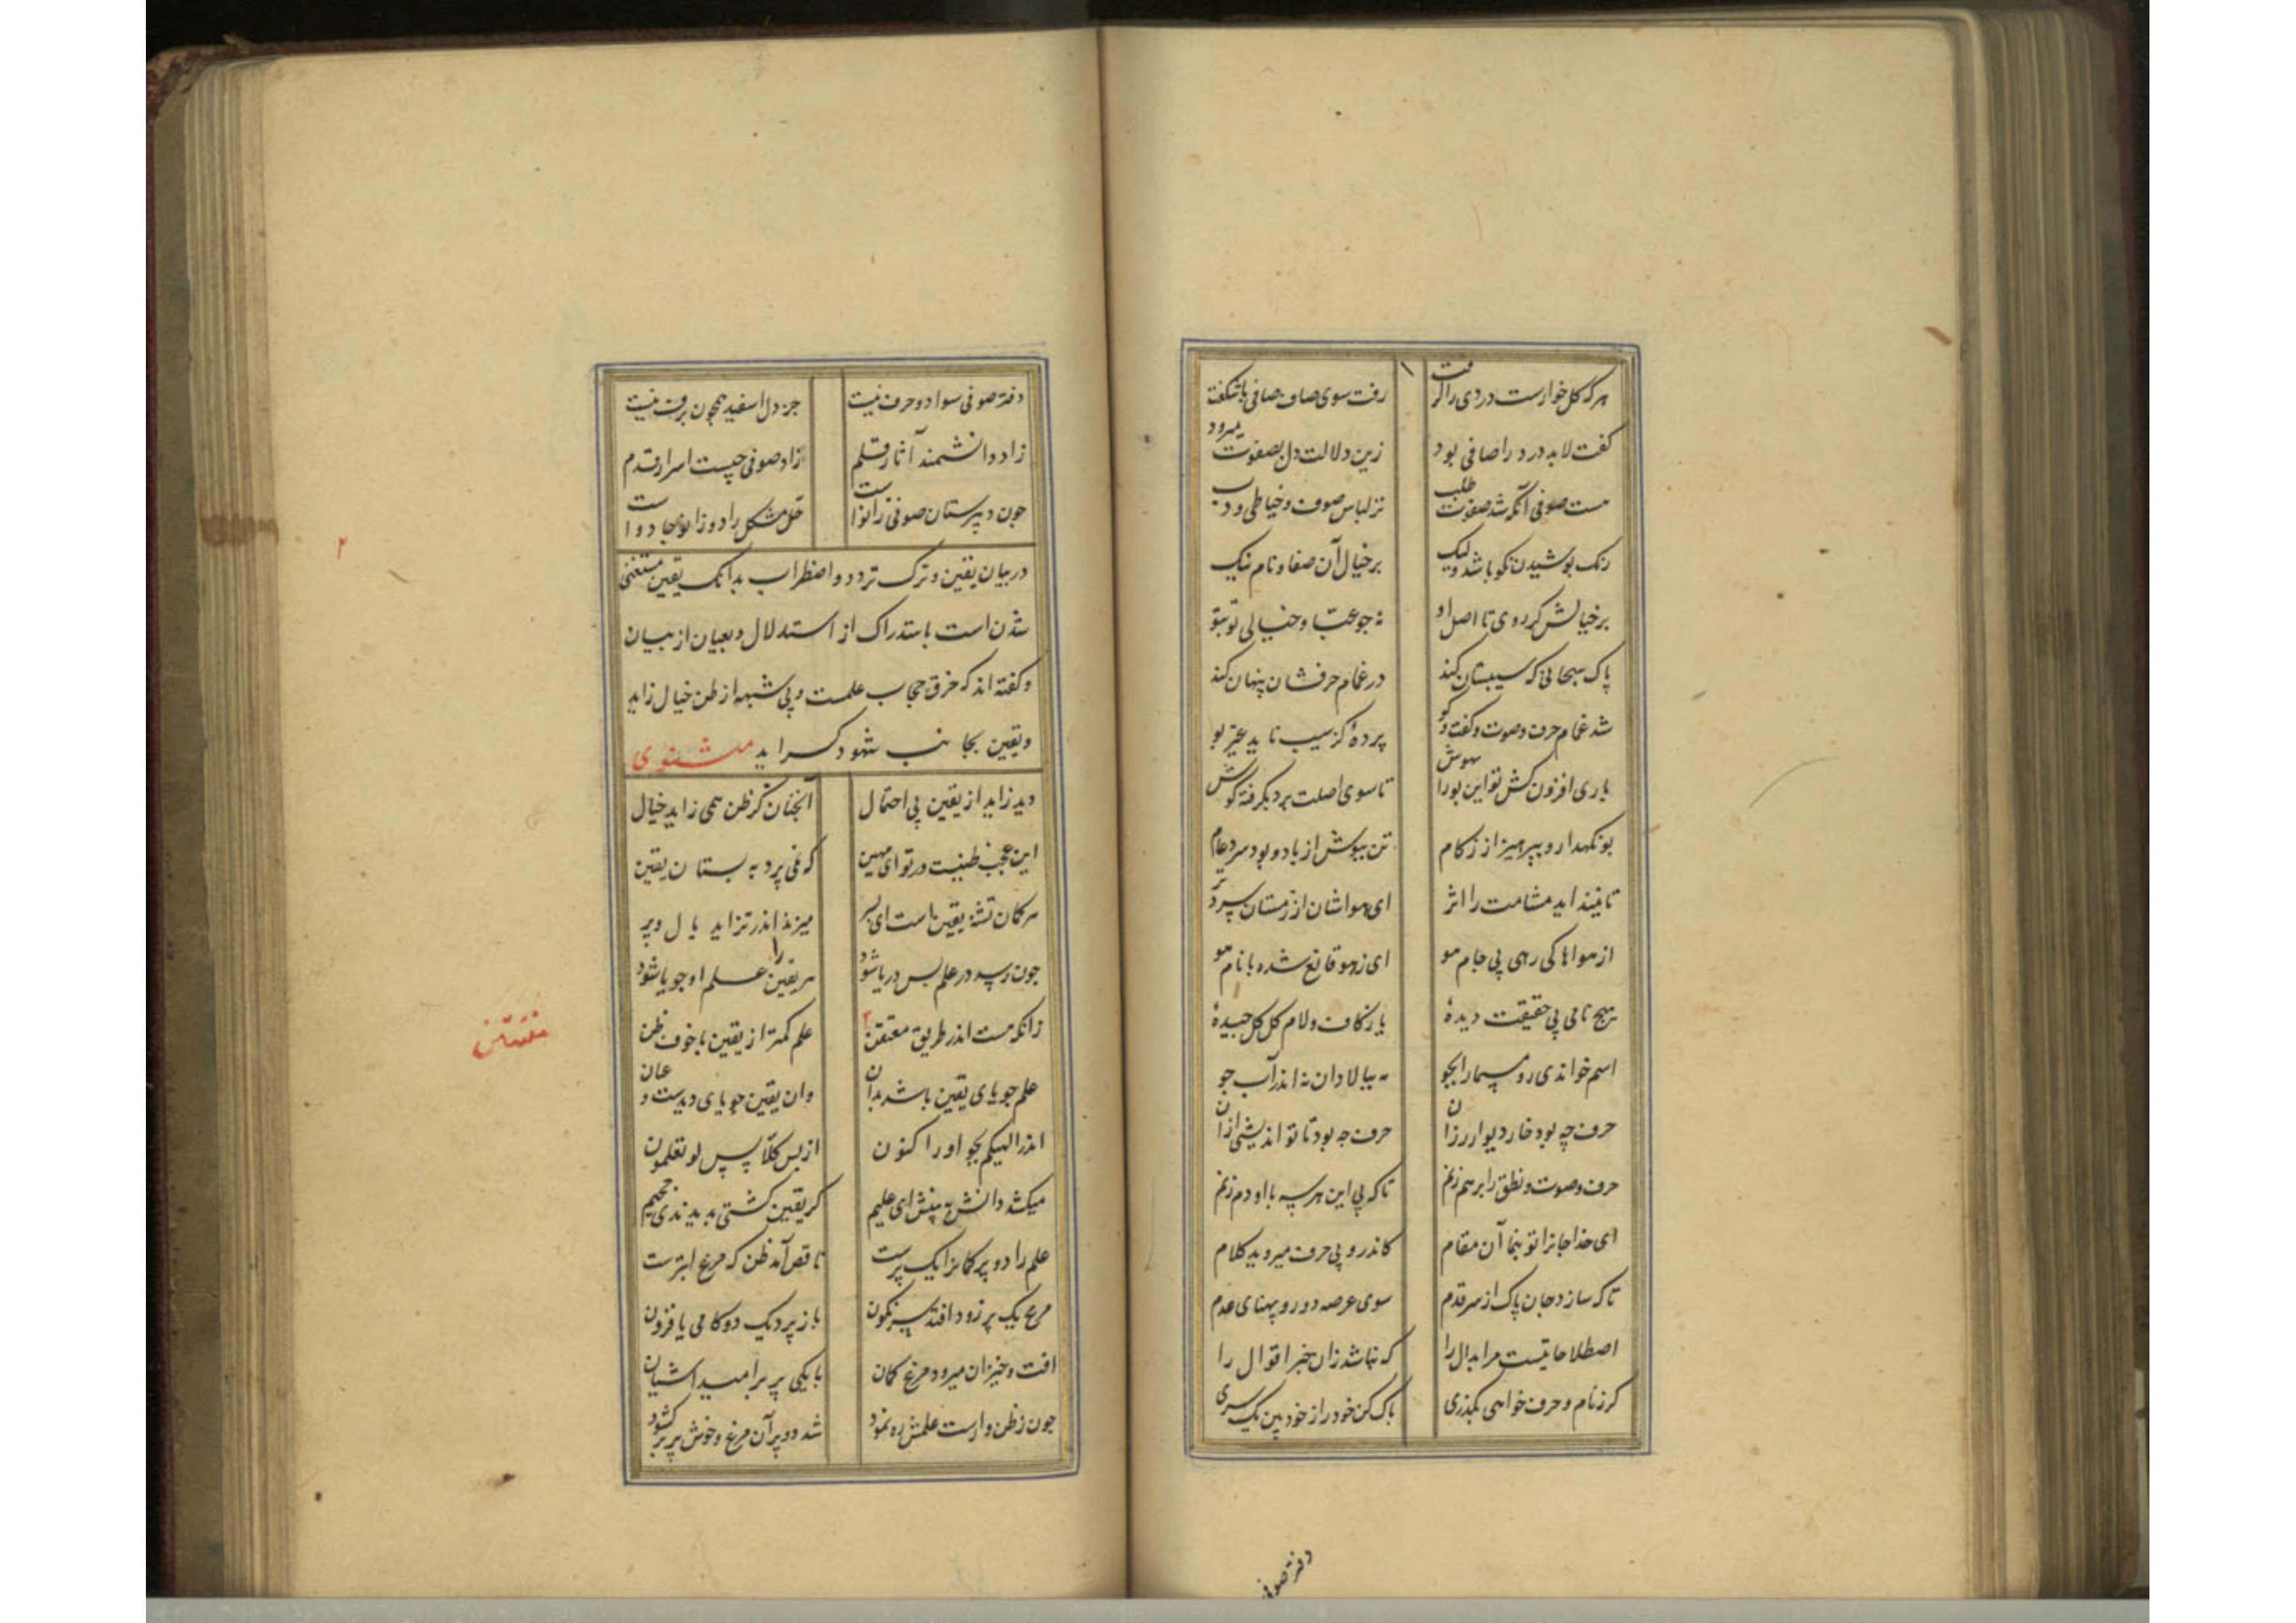 هر که گل خوارست دردی را گرفت رفت سوی صاف صافی ناشکفت
گفت لابد درد را صافی بود زین دلالت دل بصفوت میرود
هست صوفی آنکه شد صفوت طلب نز لباس صوف و خیاطی و دب
رنک پوشیدن نکو باشد ولیک بر خیال آن صفا و نام نیک
بر خیالش کر روی تا اصل او نه جو عباد خیالی تو بتو
پاک سبحانی که سیبستان کند در غمام حرفشان پنهان کند
شد غمام حرف و صوت و گفت و گو پردهٔ کز سیب ناید غیر بو
باری افزون کش تو این بو را بهوش تا سوی اصلت برد بگرفته گوش
بو نگهدار و بپرهیز از زکام تن بپوش از باد و بود سرد عام
تا نینداید مشامت را اثر ای هواشان از زمستان سردتر
از هواها کی رهی بی جام هو ای ز هو قانع شده با نام هو
هیچ نامی بی حقیقت دیدهٔ یا ز کاف و لام گل گل چیدهٔ
اسم خواندی رو مسما را بجو مه ببالا دان نه اندر آب جو
حرف چه بود خار دیوار رزان حرف چه بود تا تو اندیشی از آن
حرف و صوت و نطق را برهم زنم تا که بی این هر سه با او دم زنم
ای خدا جانرا تو بنما آن مقام کاندرو بی حرف میروید کلام
تا که سازد جان پاک از سر قدم سوی عرصه دور و پهنای عدم
اصطلاحاتیست مر ابدال را که نباشد زان خبر اقوال را
کر ز نام و حرف خواهی بگذری پاک کن خود را ز خود هین یک سری
دفتر صوفی
دفتر صوفی سواد و حرف نیست جز دل اسفید همچون برف نیست
زاد دانشمند آثار قلم زاد صوفی چیست اسرار قدم
چون دبیرستان صوفی زانوا ست حل مشکل را دو زانو جادوا ست
در بیان یقین و ترک تردد و اضطراب بدانک یقین مستغنی
شدن است باستدراک از استدلال و بعیان از بیان
و گفته اند که خرق حجاب علمست و بی شبهه از ظن خیال زاید
و یقین بجانب شهود گراید مثنوی
دید زاید از یقین بی احتمال آنچنان کز ظن همی زاید خیال
این عجب ظنیست در تو ای مهین که نمی پرد به بستان یقین
هر کمان تشنه یقین است ای پسر میزند اندر تزاید بال و پر
چون رسد در علم پس بر پا شود مر یقین را علم او جویا شود
زانکه هست اندر طریق مفتتن علم کمتر از یقین با خوف ظن
۲
مفتتن
علم جویای یقین باشد بدان وان یقین جویای دیدست و عیان
اندر الهیکم بجو او را کنون از پس کلا پس لو تعلمون
میکشد دانش به بینش ای علیم گر یقین گشتی بدیدندی جحیم
علم را دو پر کمانرا یک پرست ناقص آمد ظن که مرغ ابترست
مرغ یک پر زود افتد سرنکون باز پرد یک دو کامی یا فزون
افت و خیزان میرود مرغ کمان با یکی پر بر امید آشیان
چون ز ظن وارست علمش ره نمود شد دو پر آن مرغ و خوش پر بر کشود